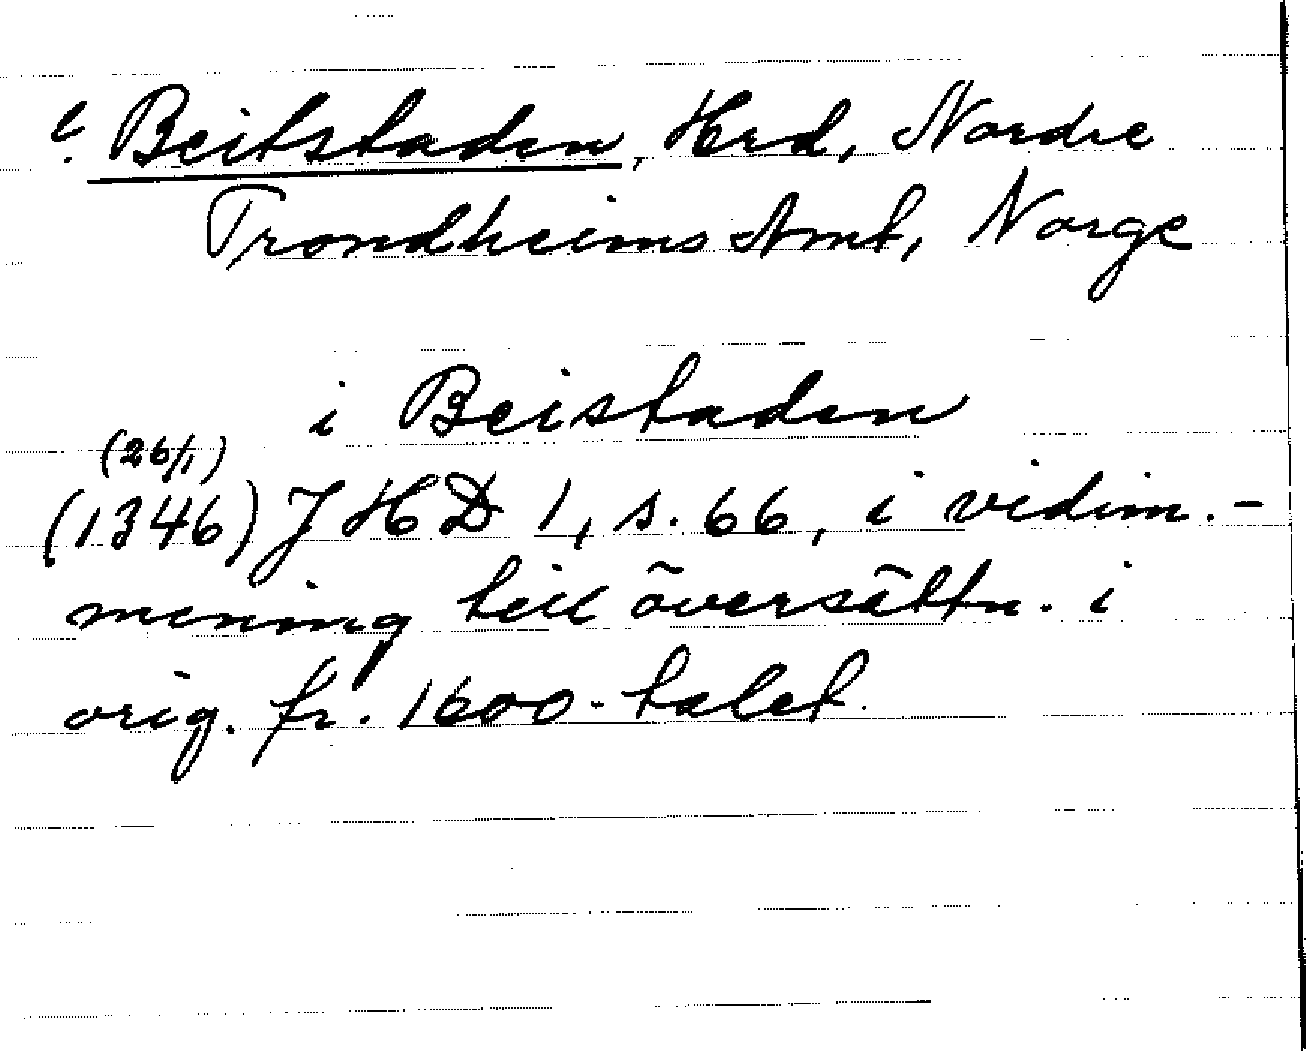 l. Beitstaden, Hrd, Nordre
Trondheims Amt, Norge
i Beistaden
(26/1)
(1346) JHD 1, s. 66, i vidim.-
mening till översättn. i
orig. fr. 1600-talet.